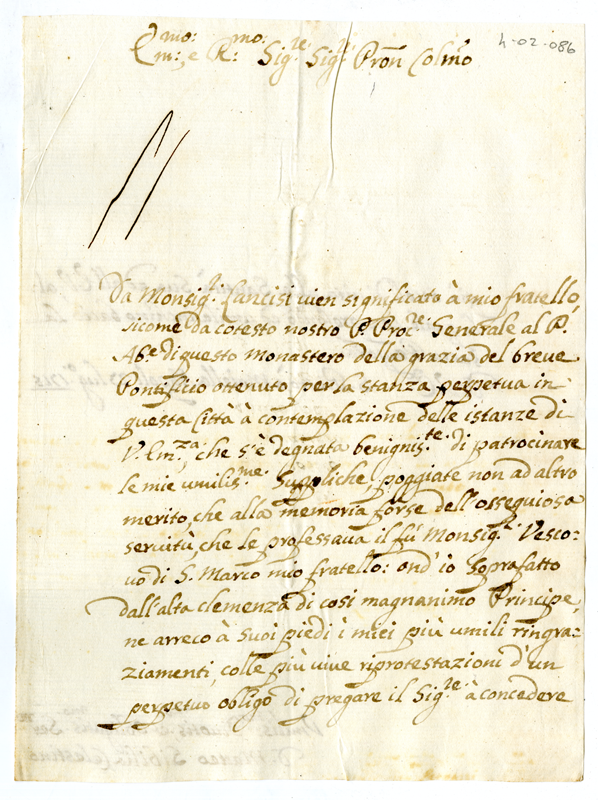 4-02-086
Em:mo e R:mo Sig:re Sig:re Pron Colmo
Da Monsig:r Lancisi vien significato à mio fratello,
sicome da cotesto nostro P. Proc:re Generale al P.
Ab:e di questo monastero della grazia del breve
Pontificio ottenuto per la stanza perpetua in
questa Città à contemplazione delle istanze di
V. Em:za, che s'è degnata benignis:te di patrocinare
le mie umilis:me Suppliche, poggiate non ad altro
merito, che alla memoria forse dell'ossequiosa
servitù, che le professava il fù Monsig:r Vesco:
vo di S. Marco mio fratello: ond'io soprafatto
dall'alta clemenza di cosi magnanimo Principe,
ne arreco à suoi piedi i miei più umili ringra:
ziamenti, colle più vive riprotestazioni d'un
perpetuo obligo di pregare il Sig:re à concedere